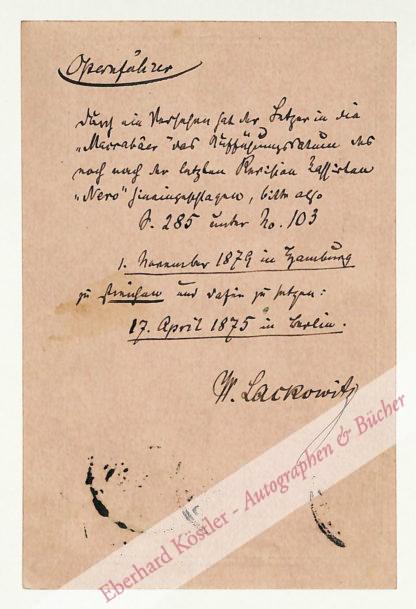 Opernführer
Durch ein Versehen hat der Setzer in die
„Maccabäer" das Aufführungsdatum des
noch nach der letzten Revision kassirten
„Nero" hineingeschlagen, bitte also
S. 285 unter No. 103
1. November 1879 in Hamburg
zu streichen und dafür zu setzen:
17. April 1875 in Berlin.
W. Lackowitz
Eberhard Köstler - Autographen & Bücher